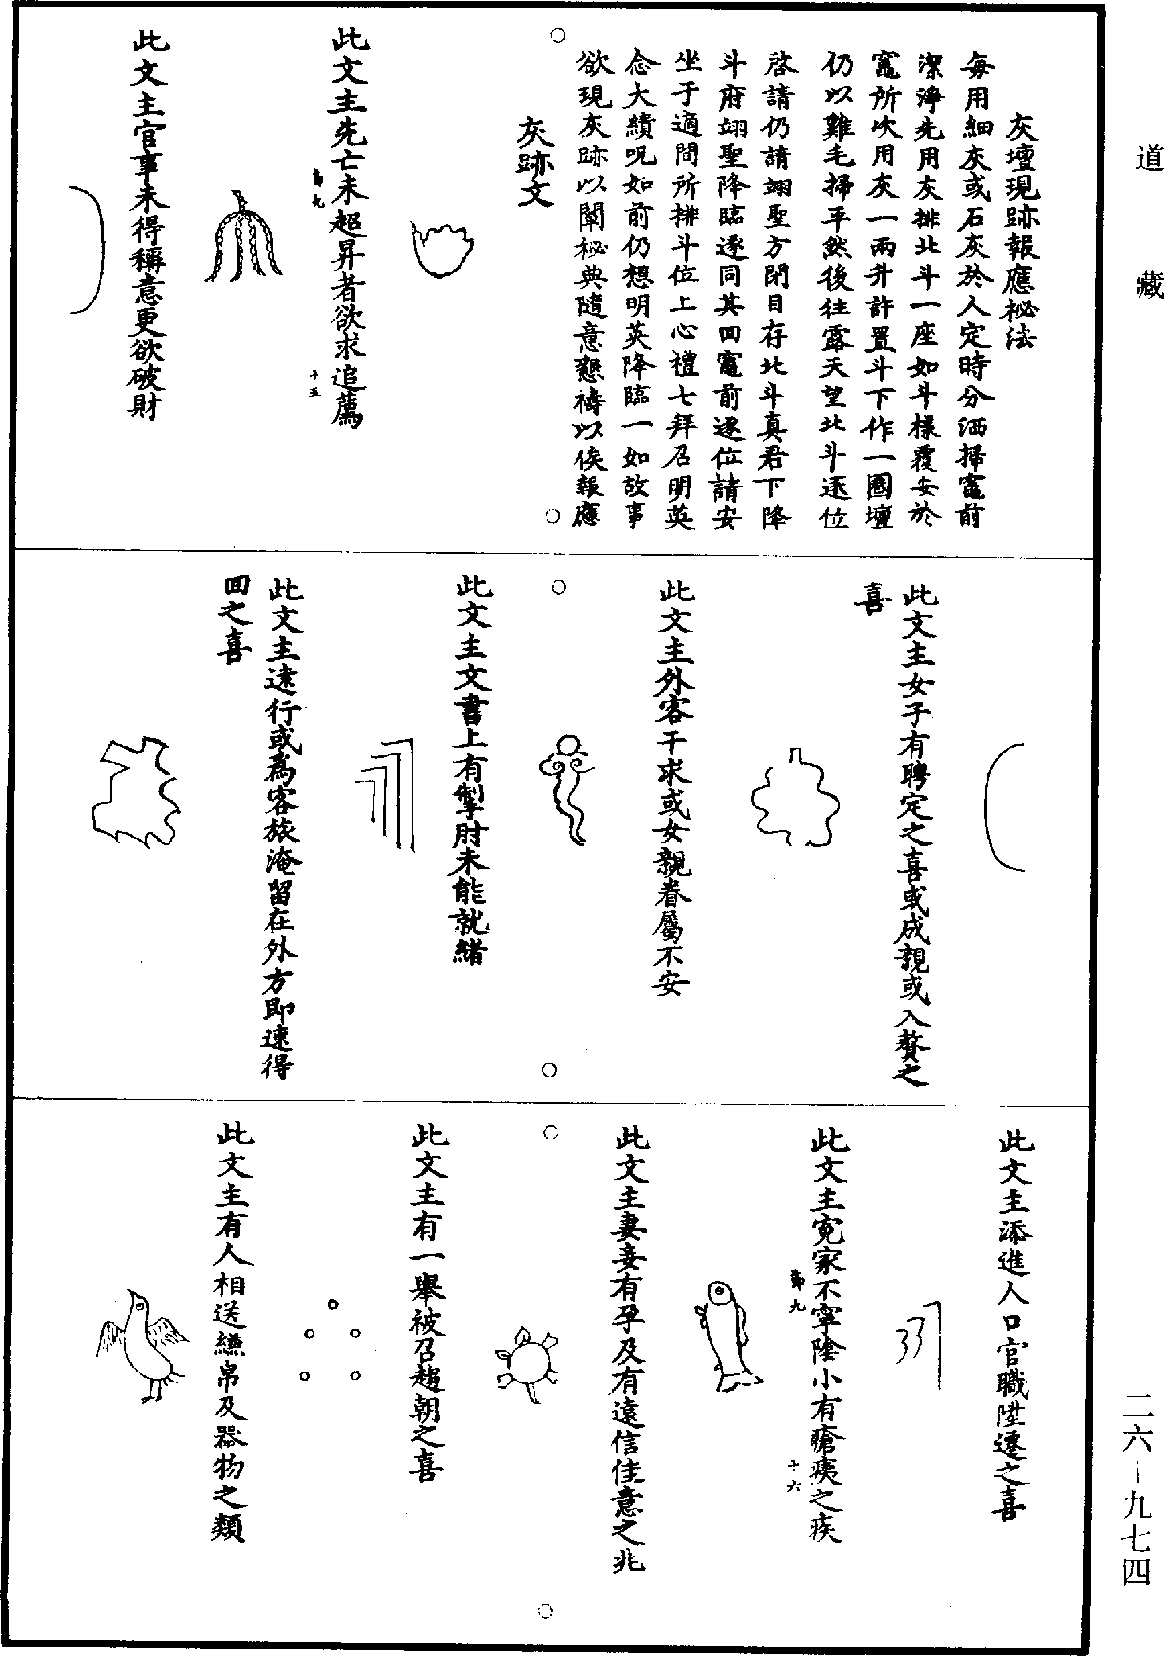 道藏
灰壇現跡報應祕法
每用細灰或石灰於人定時分洒掃竈前
潔淨先用灰排北斗一座如斗樣覆安於
竈所次用灰一兩升許置斗下作一圈壇
仍以雞毛掃平然後往露天望北斗逐位
啓請仍請翊聖方閉目存北斗真君下降
斗府翊聖降臨逐同其回竈前逐位請安
坐于適間所排斗位上心禮七拜召明英
念大績呪如前仍想明英降臨一如故事
欲現灰跡以闡祕典隨意懇禱以俟報應
灰跡文
此文主先亡未超昇者欲求追薦
弟九
十五
此文主官事未得稱意更欲破財
此文主女子有聘定之喜或成親或入贅之
喜
此文主外客干求或女親眷屬不安
此文主文書上有掣肘未能就緒
此文主遠行或為客旅淹留在外方即速得
回之喜
此文主添進人口官職陞遷之喜
此文主冤家不寧陰小有瘡痍之疾
弟九
十六
此文主妻妾有孕及有遠信佳意之兆
此文主有一舉被召趨朝之喜
此文主有人相送縑帛及器物之類
二六–九七四